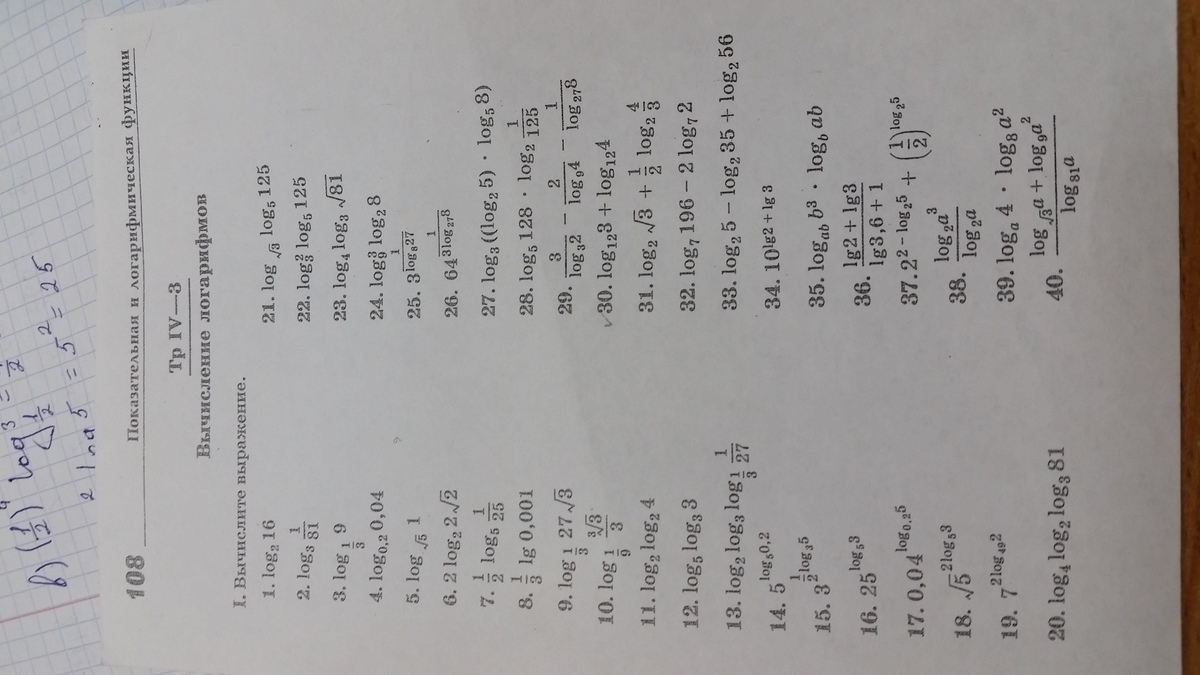 в) (1/2)^4 log_{1/2} 3 =
2 log 5 = 5² = 25
108 Показательная и логарифмическая функции
Тр IV—3
Вычисление логарифмов
I. Вычислите выражение.
1. log₂ 16
2. log₃ 1/81
3. log_{1/3} 9
4. log_{0,2} 0,04
5. log_{√5} 1
6. 2 log₂ 2√2
7. 1/2 log₅ 1/25
8. 1/3 lg 0,001
9. log_{1/3} 27√3
10. log_{1/9} ∛3/3
11. log₂ log₂ 4
12. log₅ log₃ 3
13. log₂ log₃ log_{1/3} 1/27
14. 5^{log₅ 0,2}
15. 3^{1/2 log₃ 5}
16. 25^{log₅ 3}
17. 0,04^{log_{0,2} 5}
18. √5^{2 log₅ 3}
19. 7^{2 log_{49} 2}
20. log₄ log₂ log₃ 81
21. log_{√3} log₅ 125
22. log₃² log₅ 125
23. log₄ log₃ √81
24. log₉³ log₂ 8
25. 3^{1/log₈ 27}
26. 64^{1/(3 log₂₇ 8)}
27. log₃ ((log₂ 5) · log₅ 8)
28. log₅ 128 · log₂ 1/125
29. 3/log₃ 2 − 2/log₉ 4 − 1/log₂₇ 8
30. log₁₂ 3 + log₁₂ 4
31. log₂ √3 + 1/2 log₂ 4/3
32. log₇ 196 − 2 log₇ 2
33. log₂ 5 − log₂ 35 + log₂ 56
34. 10^{lg 2 + lg 3}
35. log_{ab} b³ · log_b ab
36. (lg 2 + lg 3)/(lg 3,6 + 1)
37. 2^{2 − log₂ 5} + (1/2)^{log₂ 5}
38. log₂ a³/log₂ a
39. log_a 4 · log₈ a²
40. (log_{√3} a + log₉ a²)/log₈₁ a